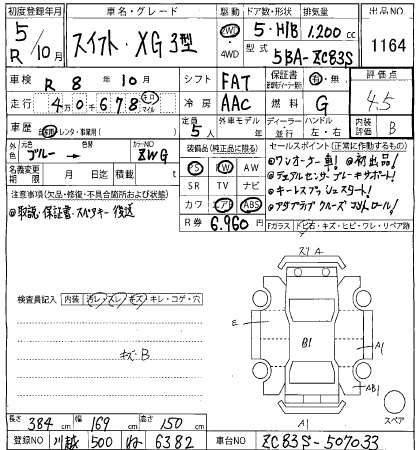 初度登録年月 車名・グレード ドア数・形状 排気量 出品NO
5 R/10月 スイフト・XG 3型 2WD 4WD 5・H/B 1,200cc 1164
型式 5BA-ZC83S
車検 R 8年 10月 シフト FAT 保証書 有・無 評価点 4.5
走行 4万0千678 キロ マイル 冷房 AAC 燃料 G
車歴 自家用・レンタ・事業用( ) 定員 5人 外車モデル 年 ディーラー 並行 ハンドル 左・右 内装評価 B
外色 元色 ブルー → 替 カラーNO ZWG
装備品(純正品に限る) セールスポイント(正常に作動するもの)
名義変更期限 月 日迄 積載 t
PS PW AW
SR TV ナビ
カワ エアB ABS
R券 6,960円
@ワンオーナー車! @初出品!
@デュアルセンサーブレーキサポート!
@キーレスプッシュスタート!
@アダプティブクルーズコントロール!
注意事項(欠品・修復・不具合箇所および状態)
@取説・保証書・スペアキー後送
Fガラス トビ石・キズ・ヒビ・ワレ・リペア跡
検査員記入 内装 汚レ・スレ・キズ・キレ・コゲ・穴
キズ・B
スリA
E
B1
A1
AB1
A1
スペア
長さ 384cm 幅 169cm 高さ 150cm
登録NO 川越 500 6382 車台NO ZC83S-507033